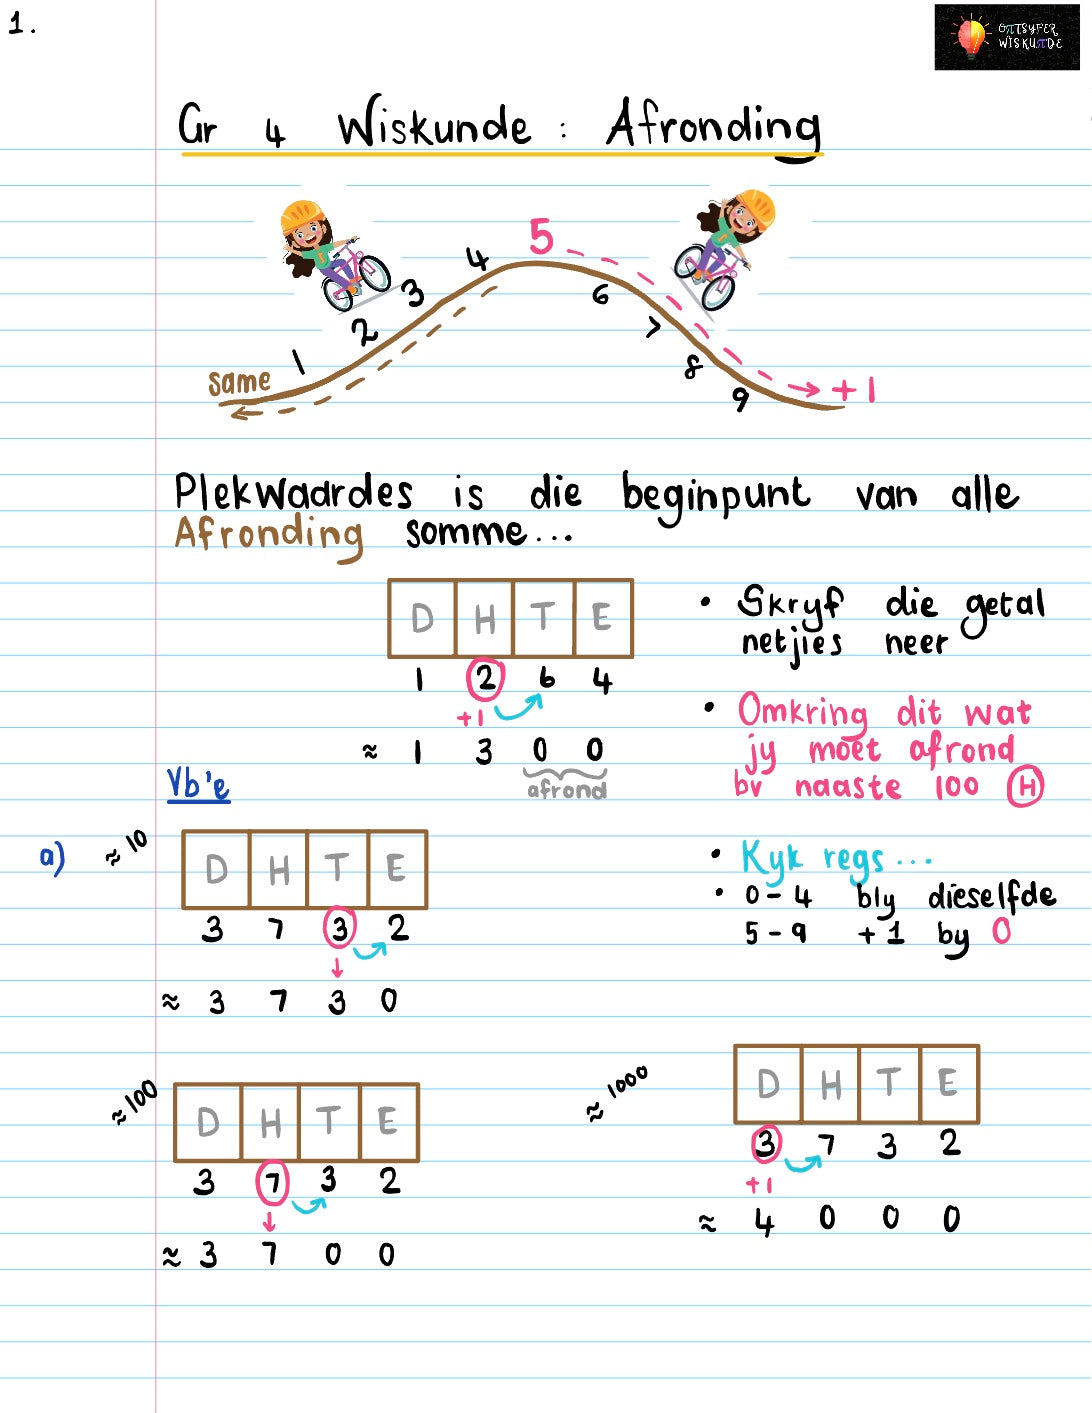 1.
OπTSYFER
WISKUπDE
Gr 4 Wiskunde : Afronding
same 1 2 3 4 5 6 7 8 9 +1
Plekwaardes is die beginpunt van alle
Afronding somme...
D H T E
1 2 6 4
+1
≈ 1 3 0 0
afrond
• Skryf die getal
netjies neer
• Omkring dit wat
jy moet afrond
bv naaste 100 H
• Kyk regs...
• 0-4 bly dieselfde
5-9 +1 by 0
Vb'e
a) ≈10
D H T E
3 7 3 2
≈ 3 7 3 0
≈100
D H T E
3 7 3 2
≈ 3 7 0 0
≈ 1000
D H T E
3 7 3 2
+1
≈ 4 0 0 0